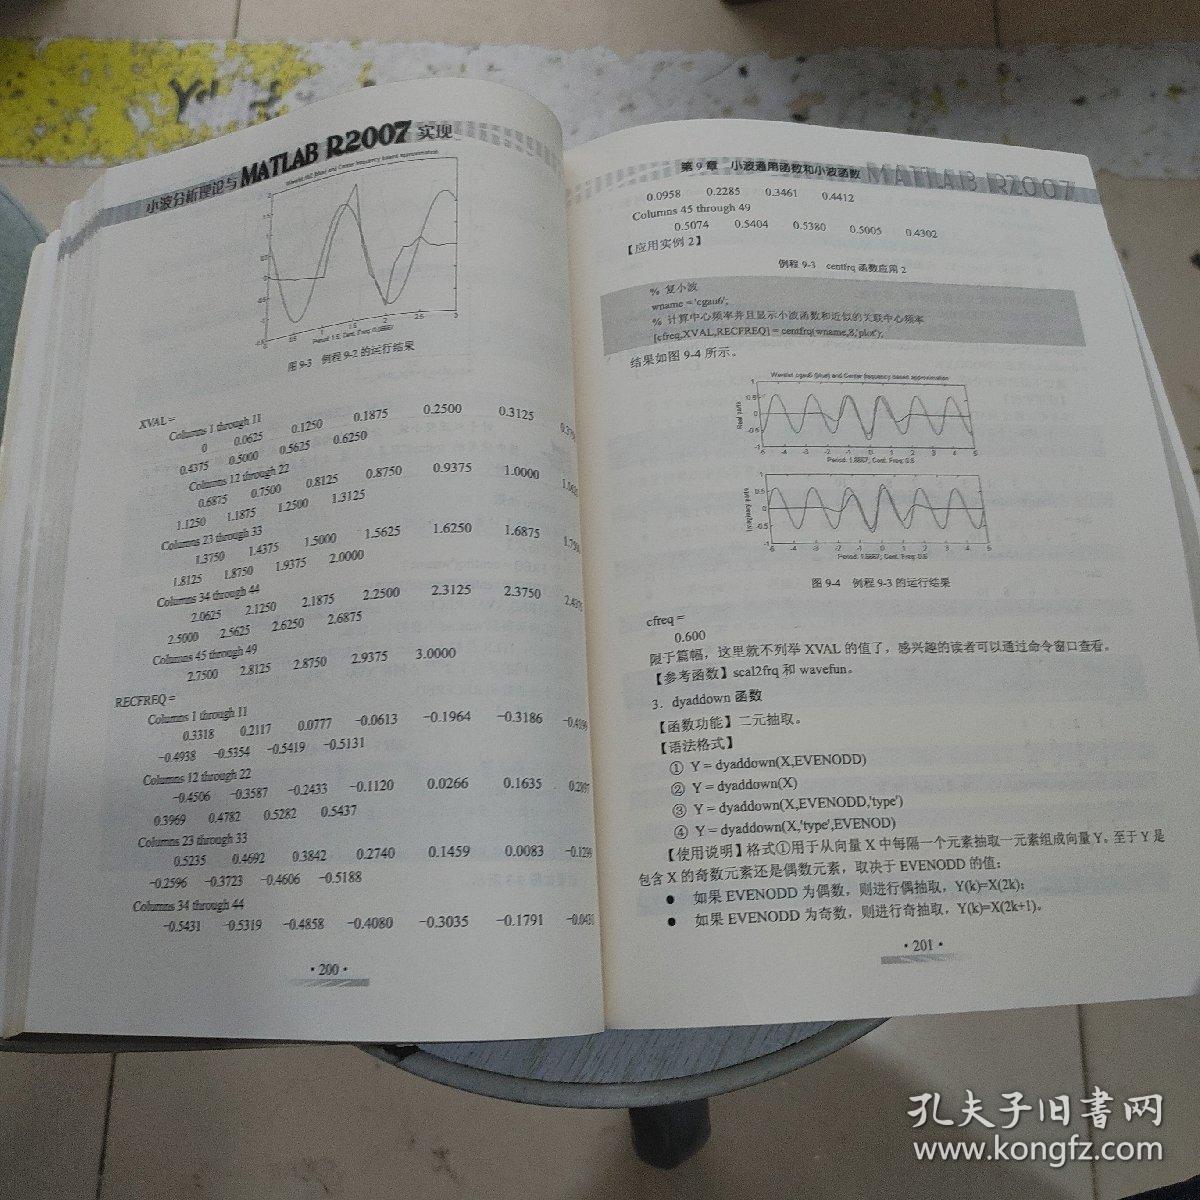 小波分析理论与MATLAB R2007实现
Wavelet db2 (blue) and Center frequency based approximation
Period: 1.5; Cent. Freq: 0.66667
图 9-3 例程 9-2 的运行结果
XVAL =
Columns 1 through 11
0 0.0625 0.1250 0.1875 0.2500 0.3125
0.4375 0.5000 0.5625 0.6250
Columns 12 through 22
0.6875 0.7500 0.8125 0.8750 0.9375 1.0000
1.1250 1.1875 1.2500 1.3125
Columns 23 through 33
1.3750 1.4375 1.5000 1.5625 1.6250 1.6875
1.8125 1.8750 1.9375 2.0000
Columns 34 through 44
2.0625 2.1250 2.1875 2.2500 2.3125 2.3750 2.4375
2.5000 2.5625 2.6250 2.6875
Columns 45 through 49
2.7500 2.8125 2.8750 2.9375 3.0000
RECFREQ =
Columns 1 through 11
0.3318 0.2117 0.0777 −0.0613 −0.1964 −0.3186
−0.4938 −0.5354 −0.5419 −0.5131
Columns 12 through 22
−0.4506 −0.3587 −0.2433 −0.1120 0.0266 0.1635
0.3969 0.4782 0.5282 0.5437
Columns 23 through 33
0.5235 0.4692 0.3842 0.2740 0.1459 0.0083 −0.1299
−0.2596 −0.3723 −0.4606 −0.5188
Columns 34 through 44
−0.5431 −0.5319 −0.4858 −0.4080 −0.3035 −0.1791
·200·
第 9 章 小波通用函数和小波函数 MATLAB R2007
0.0958 0.2285 0.3461 0.4412
Columns 45 through 49
0.5074 0.5404 0.5380 0.5005 0.4302
【应用实例 2】
例程 9-3 centfrq 函数应用 2
% 复小波
wname = 'cgau6';
% 计算中心频率并且显示小波函数和近似的关联中心频率
[cfreq,XVAL,RECFREQ] = centfrq(wname,8,'plot');
结果如图 9-4 所示。
Wavelet cgau6 (blue) and Center frequency based approximation
Real parts
Period: 1.6667; Cent. Freq: 0.6
Imaginary parts
Period: 1.6667; Cent. Freq: 0.6
图 9-4 例程 9-3 的运行结果
cfreq =
0.600
限于篇幅，这里就不列举 XVAL 的值了，感兴趣的读者可以通过命令窗口查看。
【参考函数】scal2frq 和 wavefun。
3．dyaddown 函数
【函数功能】二元抽取。
【语法格式】
① Y = dyaddown(X,EVENODD)
② Y = dyaddown(X)
③ Y = dyaddown(X,EVENODD,'type')
④ Y = dyaddown(X,'type',EVENOD)
【使用说明】格式①用于从向量 X 中每隔一个元素抽取一元素组成向量 Y。至于 Y 是
包含 X 的奇数元素还是偶数元素，取决于 EVENODD 的值：
● 如果 EVENODD 为偶数，则进行偶抽取，Y(k)=X(2k)；
● 如果 EVENODD 为奇数，则进行奇抽取，Y(k)=X(2k+1)。
·201·
孔夫子旧书网
www.kongfz.com